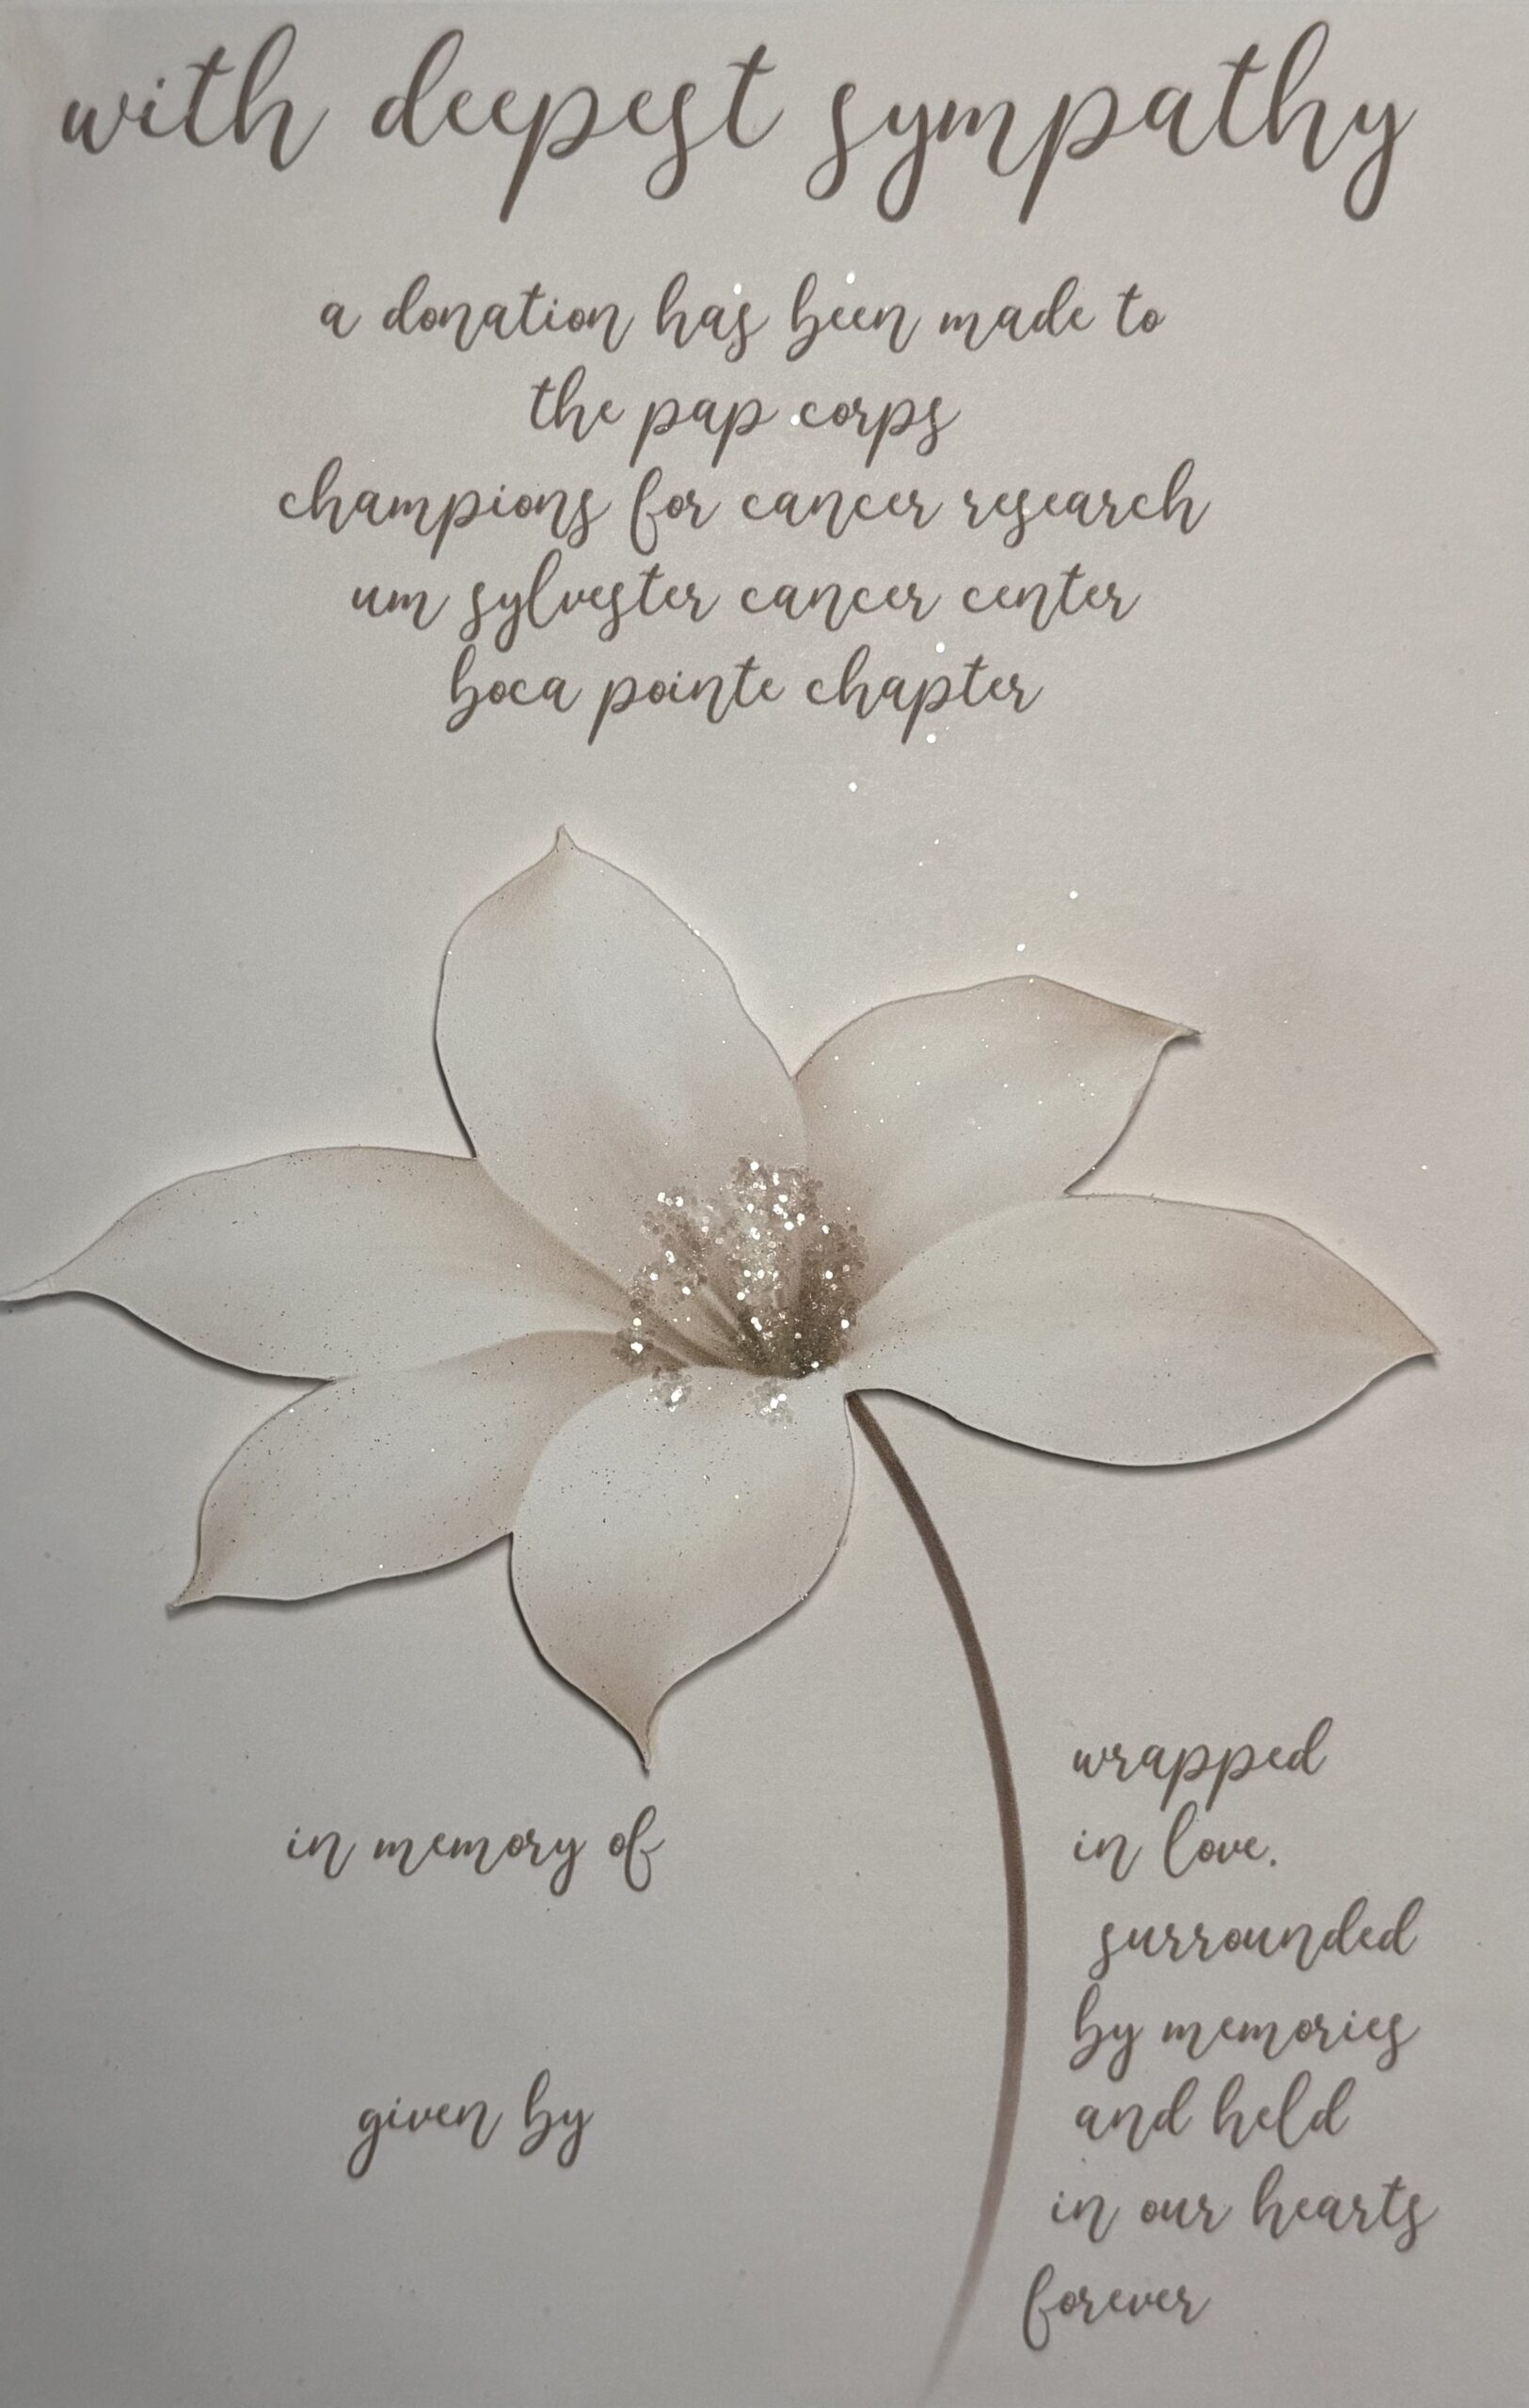 with deepest sympathy
a donation has been made to
the pap corps
champions for cancer research
um sylvester cancer center
boca pointe chapter
in memory of
given by
wrapped
in love.
surrounded
by memories
and held
in our hearts
forever